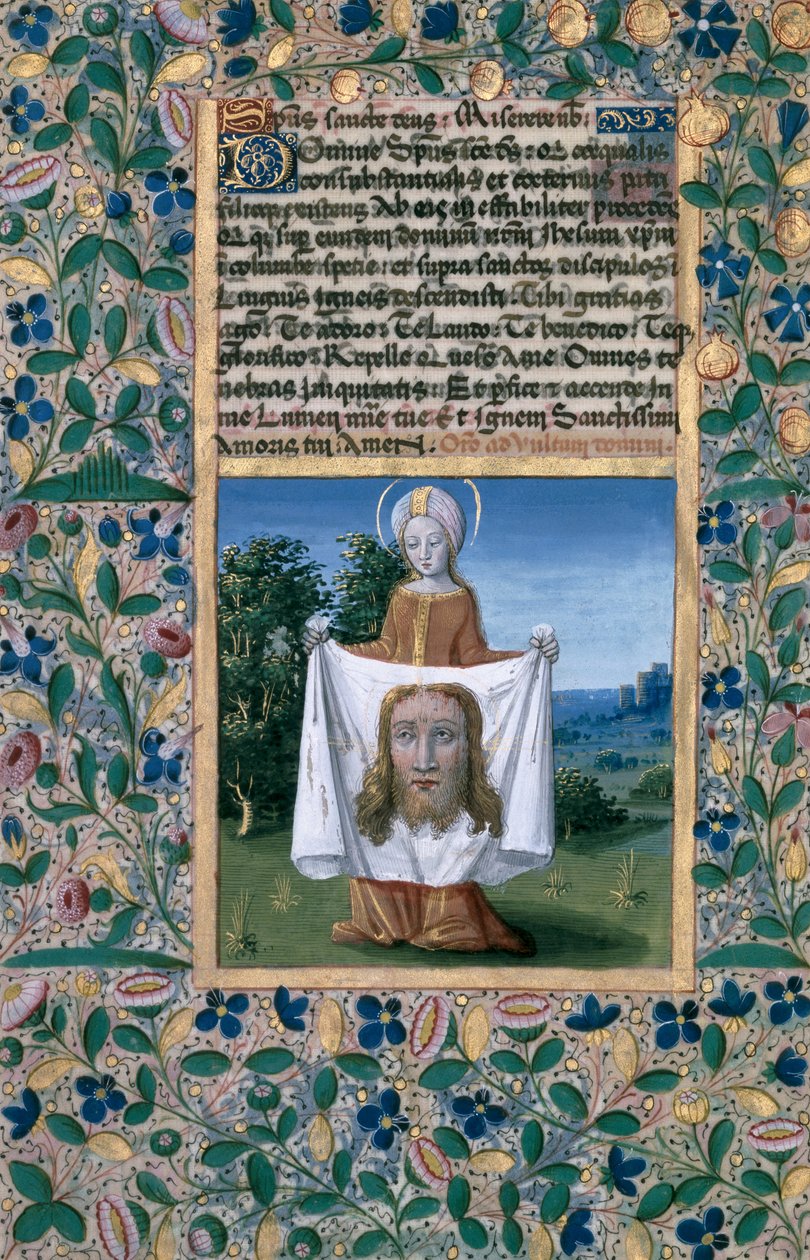 Sp̄us sancte deus : Miserere nb̄ :
Domine Sp̄us sc̄te ds̄ : Q̄ coequalis
consubstantialis et coeternus patri
filioq; existens Ab eis in effabiliter procedēs
Q̄ q; sup̄ eundem dominū nr̄m Jhesum xp̄m
ī columbe spetie : et supra sanctos discipulos ī
Linguis Igneis descendisti . Tibi gratias
ago : Te adoro : Te Laudo : Te benedico : Teq;
glorifico : Repelle q̄ueso A me Omnes te
nebras Iniquitatis : Et p̄fice et accende In
me Lumen mīe tue Et Ignem Sanctissimi
Amoris tui Amen . Oro ad vultum domini .